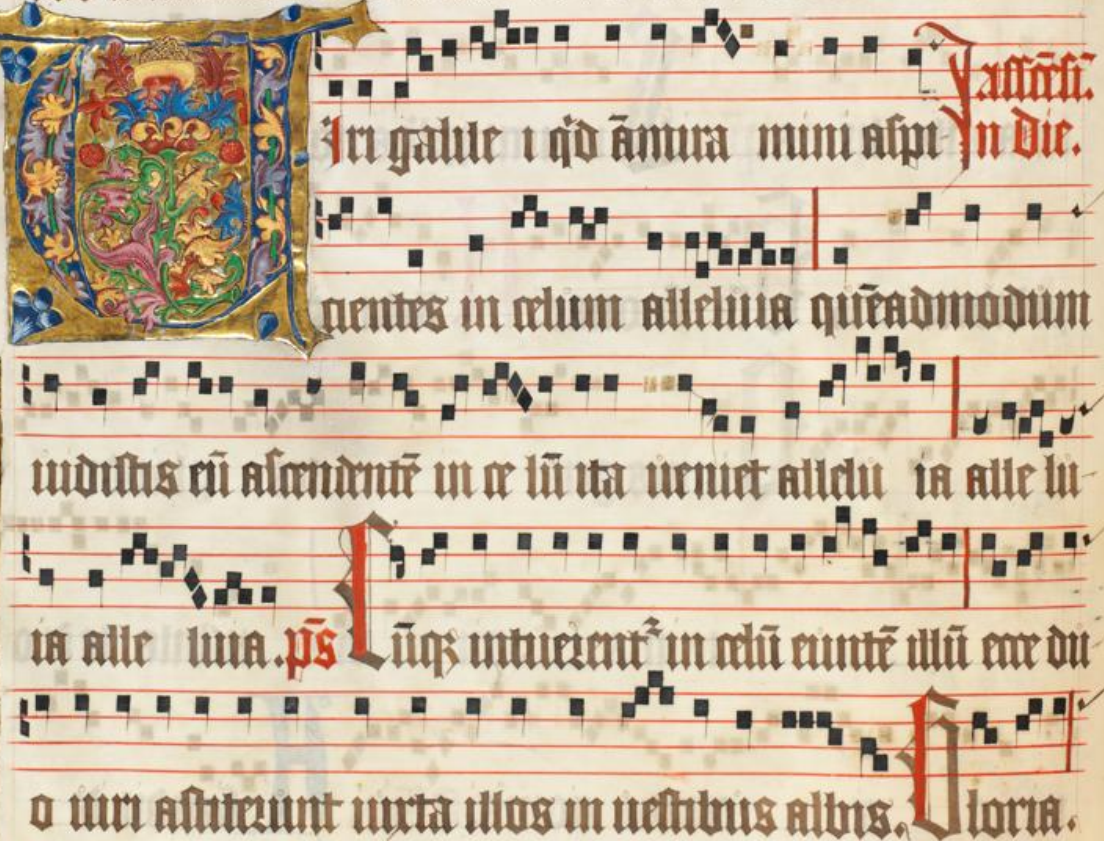 In asscēsi.
Viri galile i q̄d āmira mini aspi In die.
cientes in celum alleluia quēadmodum
uidistis eū ascendentē in ce lū ita ueniet allelu ia alle lu
ia alle luia . p̄s Cūq; intuerent᷑ in celū euntē illū ecce du
o uiri astiterunt iuxta illos in uestibus albis. Gloria.